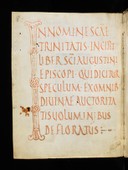 IN NOMINE SCAE
TRINITATIS INCIPIT
LIBER SCI AUGUSTINI
EPISCOPI QUI DICITUR
SPECULUM EX OMNI
DIUINAE AUCTORITA
TIS UOLUMINIBUS
DEFLORATUS